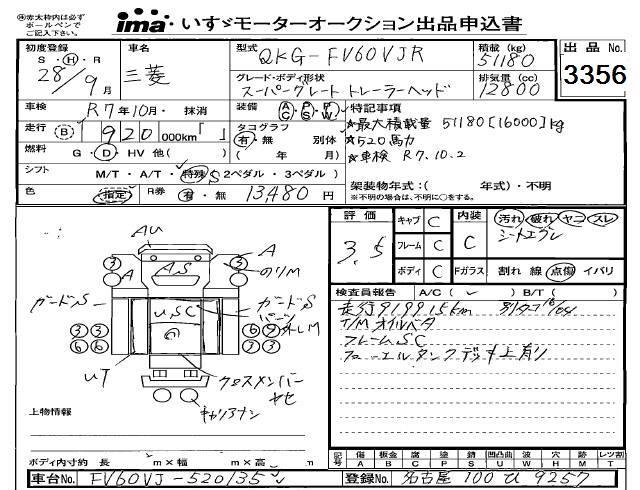 ※赤太枠内は必ず
ボールペンで
ご記入下さい。
ima いすゞモーターオークション出品申込書
初度登録
S・H・R
28年9月
車名
三菱
型式
QKG-FV60VJR
グレード・ボディ形状
スーパーグレート トレーラーヘッド
積載(kg)
51180
排気量(cc)
12800
出品No.
3356
車検
R7年10月・抹消
装備
A/C P/S P/W
走行
(B) 920 000km「 」
タコグラフ
有・無 別体
( 年 月)
燃料
G・D・HV 他( )
シフト
M/T・A/T・特殊S(2ペダル・3ペダル)
色
(指定) R券 有・無 13,480円
特記事項
★最大積載量 51180[16000]kg
★520馬力
★車検 R7.10.2
架装物年式:( 年式)・不明
※不明の場合は、不明に○をする。
評価
3.5
キャブ C
フレーム C
ボディ C
内装
C
Fガラス
汚れ 破れ ヤニ スレ
シートエグレ
割れ 線 点傷 イバリ
検査員報告 A/C( ✓ ) B/T( )
走行919915km
T/M オイルバタ
フレームSC
フューエルタンクデッキ上有り
AU
A
A
AS
のりM
ガードS
USC
ガードS
UT
クロスメンバー
キャリアナシ
③ ③
③ ③
⑥ ⑥
上物情報
ボディ内寸約 長 m×幅 m×高 m
記号 傷 板金 腐 塗 錆 凹凸曲 波 穴 跡 レツ割
A B C P S U W H M T
車台No. FV60VJ-520135
登録No. 名古屋 100 い 9257